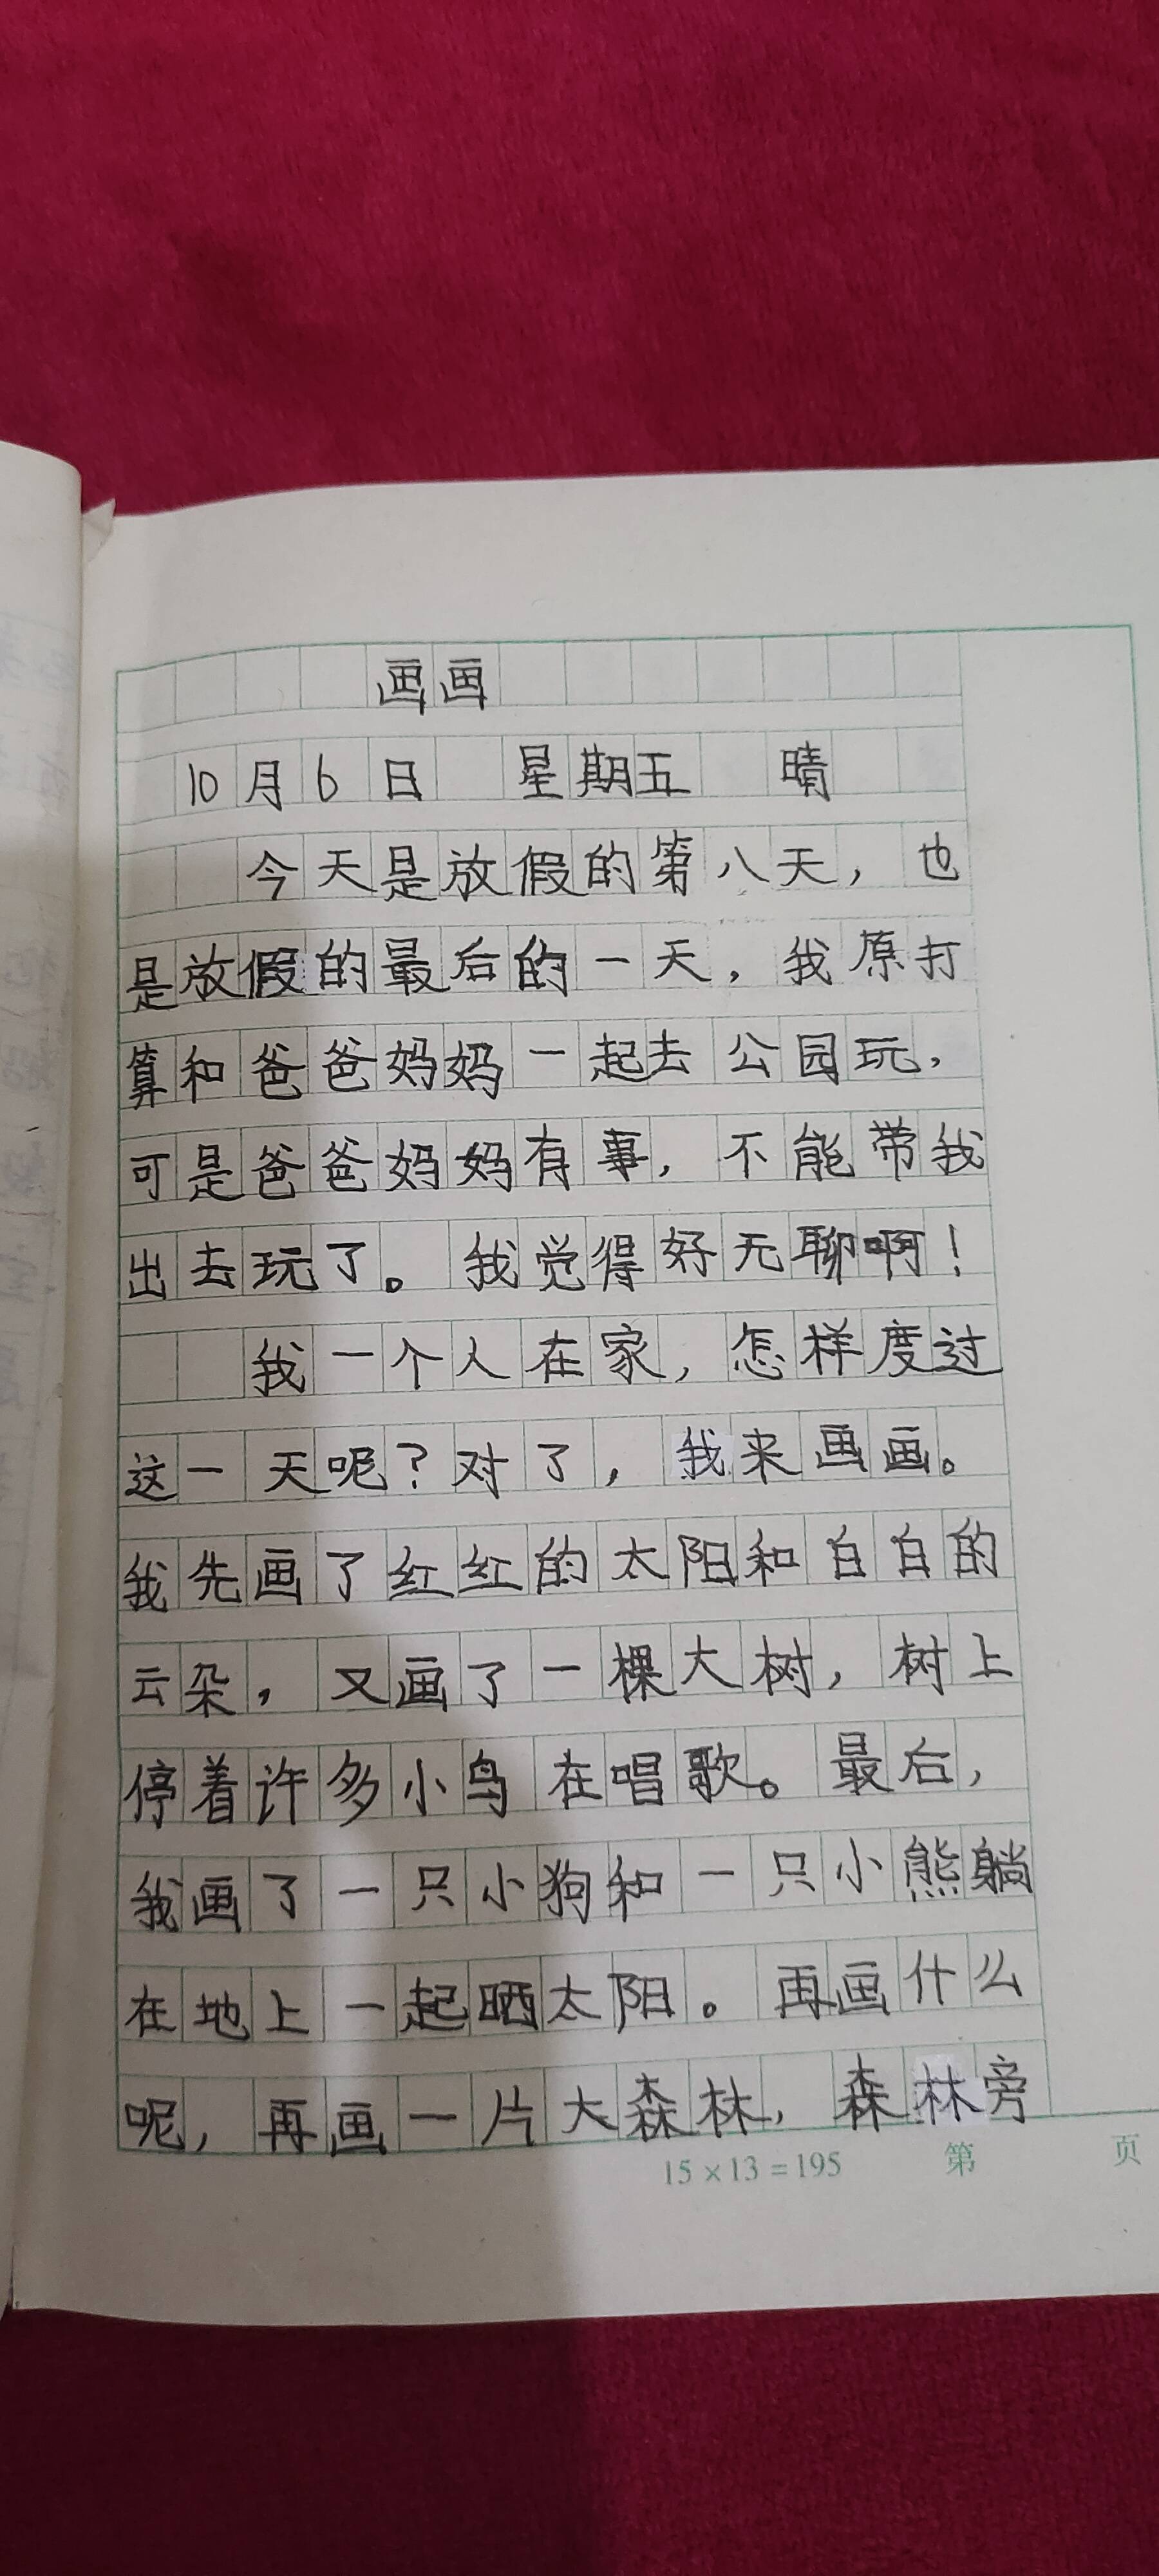 画画
10月6日 星期五 晴
今天是放假的第八天，也
是放假的最后的一天，我原打
算和爸爸妈妈一起去公园玩，
可是爸爸妈妈有事，不能带我
出去玩了。我觉得好无聊啊！
我一个人在家，怎样度过
这一天呢？对了，我来画画。
我先画了红红的太阳和白白的
云朵，又画了一棵大树，树上
停着许多小鸟在唱歌。最后，
我画了一只小狗和一只小熊躺
在地上一起晒太阳。再画什么
呢，再画一片大森林，森林旁
15×13=195 第 页